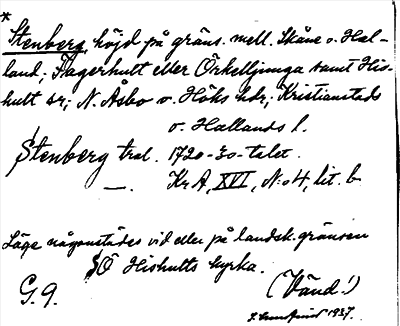 *
Stenberg, höjd på gräns. mell. Skåne o. Hal-
land; Fagerhult eller Örkelljunga samt His-
hult sr; N. Åsbo o. Höks hdr; Kristianstads
o. Hallands l.
Stenberg tral. 1720-30-talet.
—. Kr A, XVI, N:o 4, lit. b.
Läge någonstädes vid eller på landsk.gränsen
SÖ Hishults kyrka.
G. 9. (Vänd!)
1937.